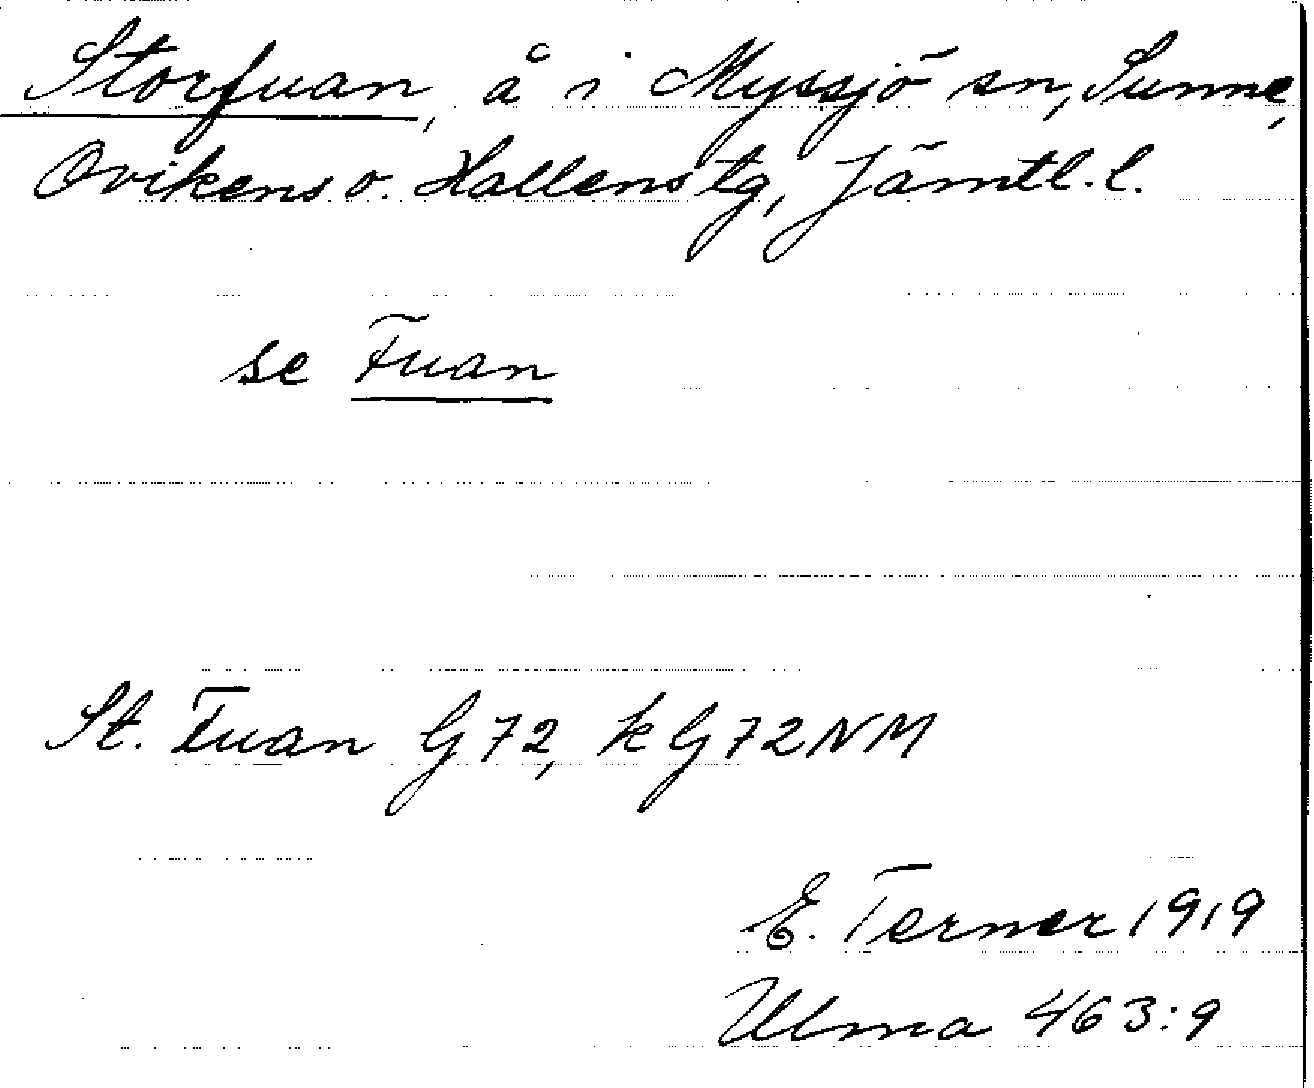 Storfuan, å i Myssjö sn, Sunne,
Ovikens o. Hallens tg, Jämtl. l.
se Fuan
St. Fuan G 72, k G 72 NM
E. Terner 1919
Ulma 463:9